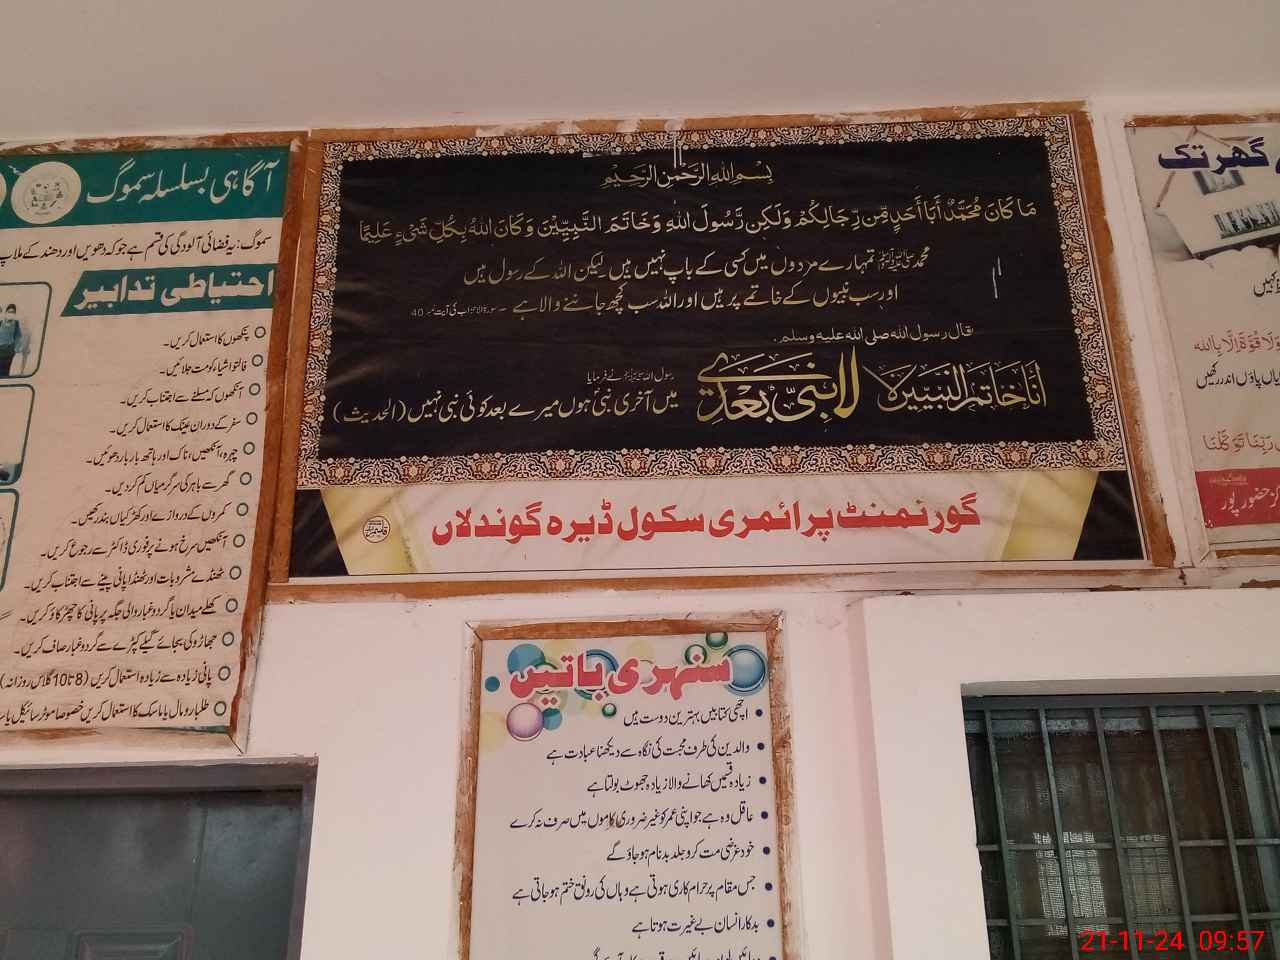 بِسْمِ اللهِ الرَّحْمٰنِ الرَّحِيْمِ
مَا كَانَ مُحَمَّدٌ أَبَا أَحَدٍ مِّن رِّجَالِكُمْ وَلَٰكِن رَّسُولَ اللهِ وَخَاتَمَ النَّبِيِّينَ وَكَانَ اللهُ بِكُلِّ شَيْءٍ عَلِيمًا
محمد ﷺ تمہارے مردوں میں کسی کے باپ نہیں ہیں لیکن اللہ کے رسول ہیں
اور سب نبیوں کے خاتمے پر ہیں اور اللہ سب کچھ جاننے والا ہے ۔ سورۃ الاحزاب کی آیت نمبر 40
قال رسول الله صلى الله عليه وسلم.
أنا خاتم النبيين لا نبي بعدي
رسول اللہ ﷺ نے فرمایا
میں آخری نبی ہوں میرے بعد کوئی نبی نہیں (الحدیث)
گورنمنٹ پرائمری سکول ڈیرہ گوندلاں
آگاہی بسلسلہ سموگ
سموگ: یہ فضائی آلودگی کی قسم ہے جو کہ دھویں اور دھند کے ملاپ
احتیاطی تدابیر
پنکھوں کا استعمال کریں۔
فالتو اشیاء کو مت جلائیں۔
آنکھوں کو مسلنے سے اجتناب کریں۔
سفر کے دوران عینک کا استعمال کریں۔
چہرہ، آنکھیں، ناک اور ہاتھ بار بار دھوئیں۔
گھر سے باہر کی سرگرمیاں کم کر دیں۔
کمروں کے دروازے اور کھڑکیاں بند رکھیں۔
آنکھیں سرخ ہونے پر فوری ڈاکٹر سے رجوع کریں۔
ٹھنڈے مشروبات اور ٹھنڈا پانی پینے سے اجتناب کریں۔
کھلے میدان یا گرد و غبار والی جگہ پر پانی کا چھڑکاؤ کریں۔
جھاڑو کی بجائے گیلے کپڑے سے گرد و غبار صاف کریں۔
پانی زیادہ سے زیادہ استعمال کریں (8 تا 10 گلاس روزانہ)
طلبا رومال یا ماسک کا استعمال کریں خصوصا موٹر سائیکل
سنہری باتیں
• اچھی کتابیں بہترین دوست ہیں
• والدین کی طرف محبت کی نگاہ سے دیکھنا عبادت ہے
• زیادہ قسمیں کھانے والا زیادہ جھوٹ بولتا ہے
• عاقل وہ ہے جو اپنی عمر کو غیر ضروری کاموں میں صرف نہ کرے
• خود غرضی مت کرو جلد بدنام ہو جاؤ گے
• جس مقام پر حرام کاری ہوتی ہے وہاں کی رونق ختم ہو جاتی ہے
• بدکار انسان بے غیرت ہوتا ہے
گھر تک
وَلَا قُوَّةَ إِلَّا بِاللهِ
پاؤں اندر رکھیں
رَبِّنَا تَوَكَّلْنَا
حضور پور
21-11-24 09:57